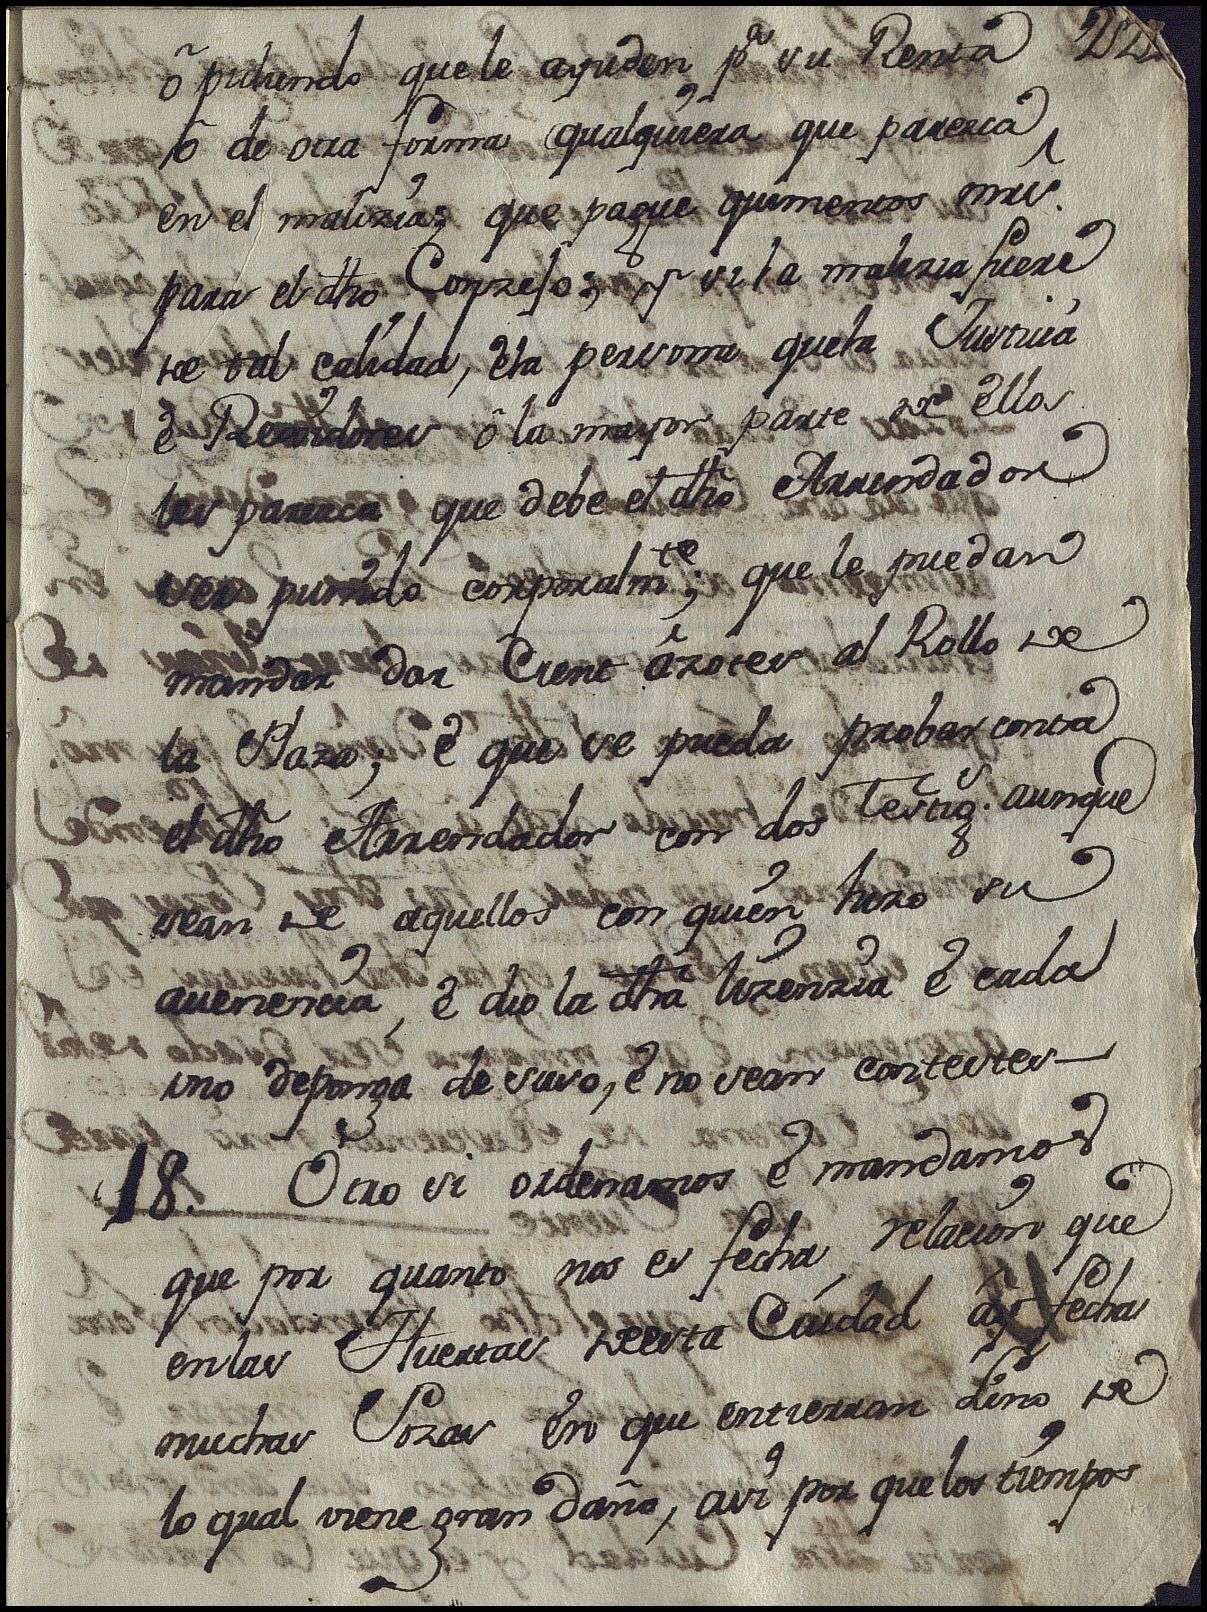 õ pidiendo que le ayuden pª su Renta
õ de otra forma qualquiera que parezca
en el malizia; que pague quinientos mrs.
para el dho Conzejo; y si la malizia fuere
de tal calidad, ela persona que la Justicia
ê Regidores ô la mayor parte de ellos
les parezca que debe el dho Arrendador
ser punido corporalmte; que le puedan
mandar dar Cient âzotes al Rollo de
la Plaza; ê que se pueda probar contra
el dho Arrendador con dos Testigs. aunque
sean de aquellos con quien hizo su
auenencia, ê dio la dha lizenzia ê cada
uno deponga de suso, ê no sean contestes
18. Otro si ordenamos ê mandamos
que por quanto nos es fecha relacion que
en las Huertas de esta Ciudad ay fechas
muchas Pozas en que entierran Lino de
lo qual viene gran daño, asi por que los tiempos